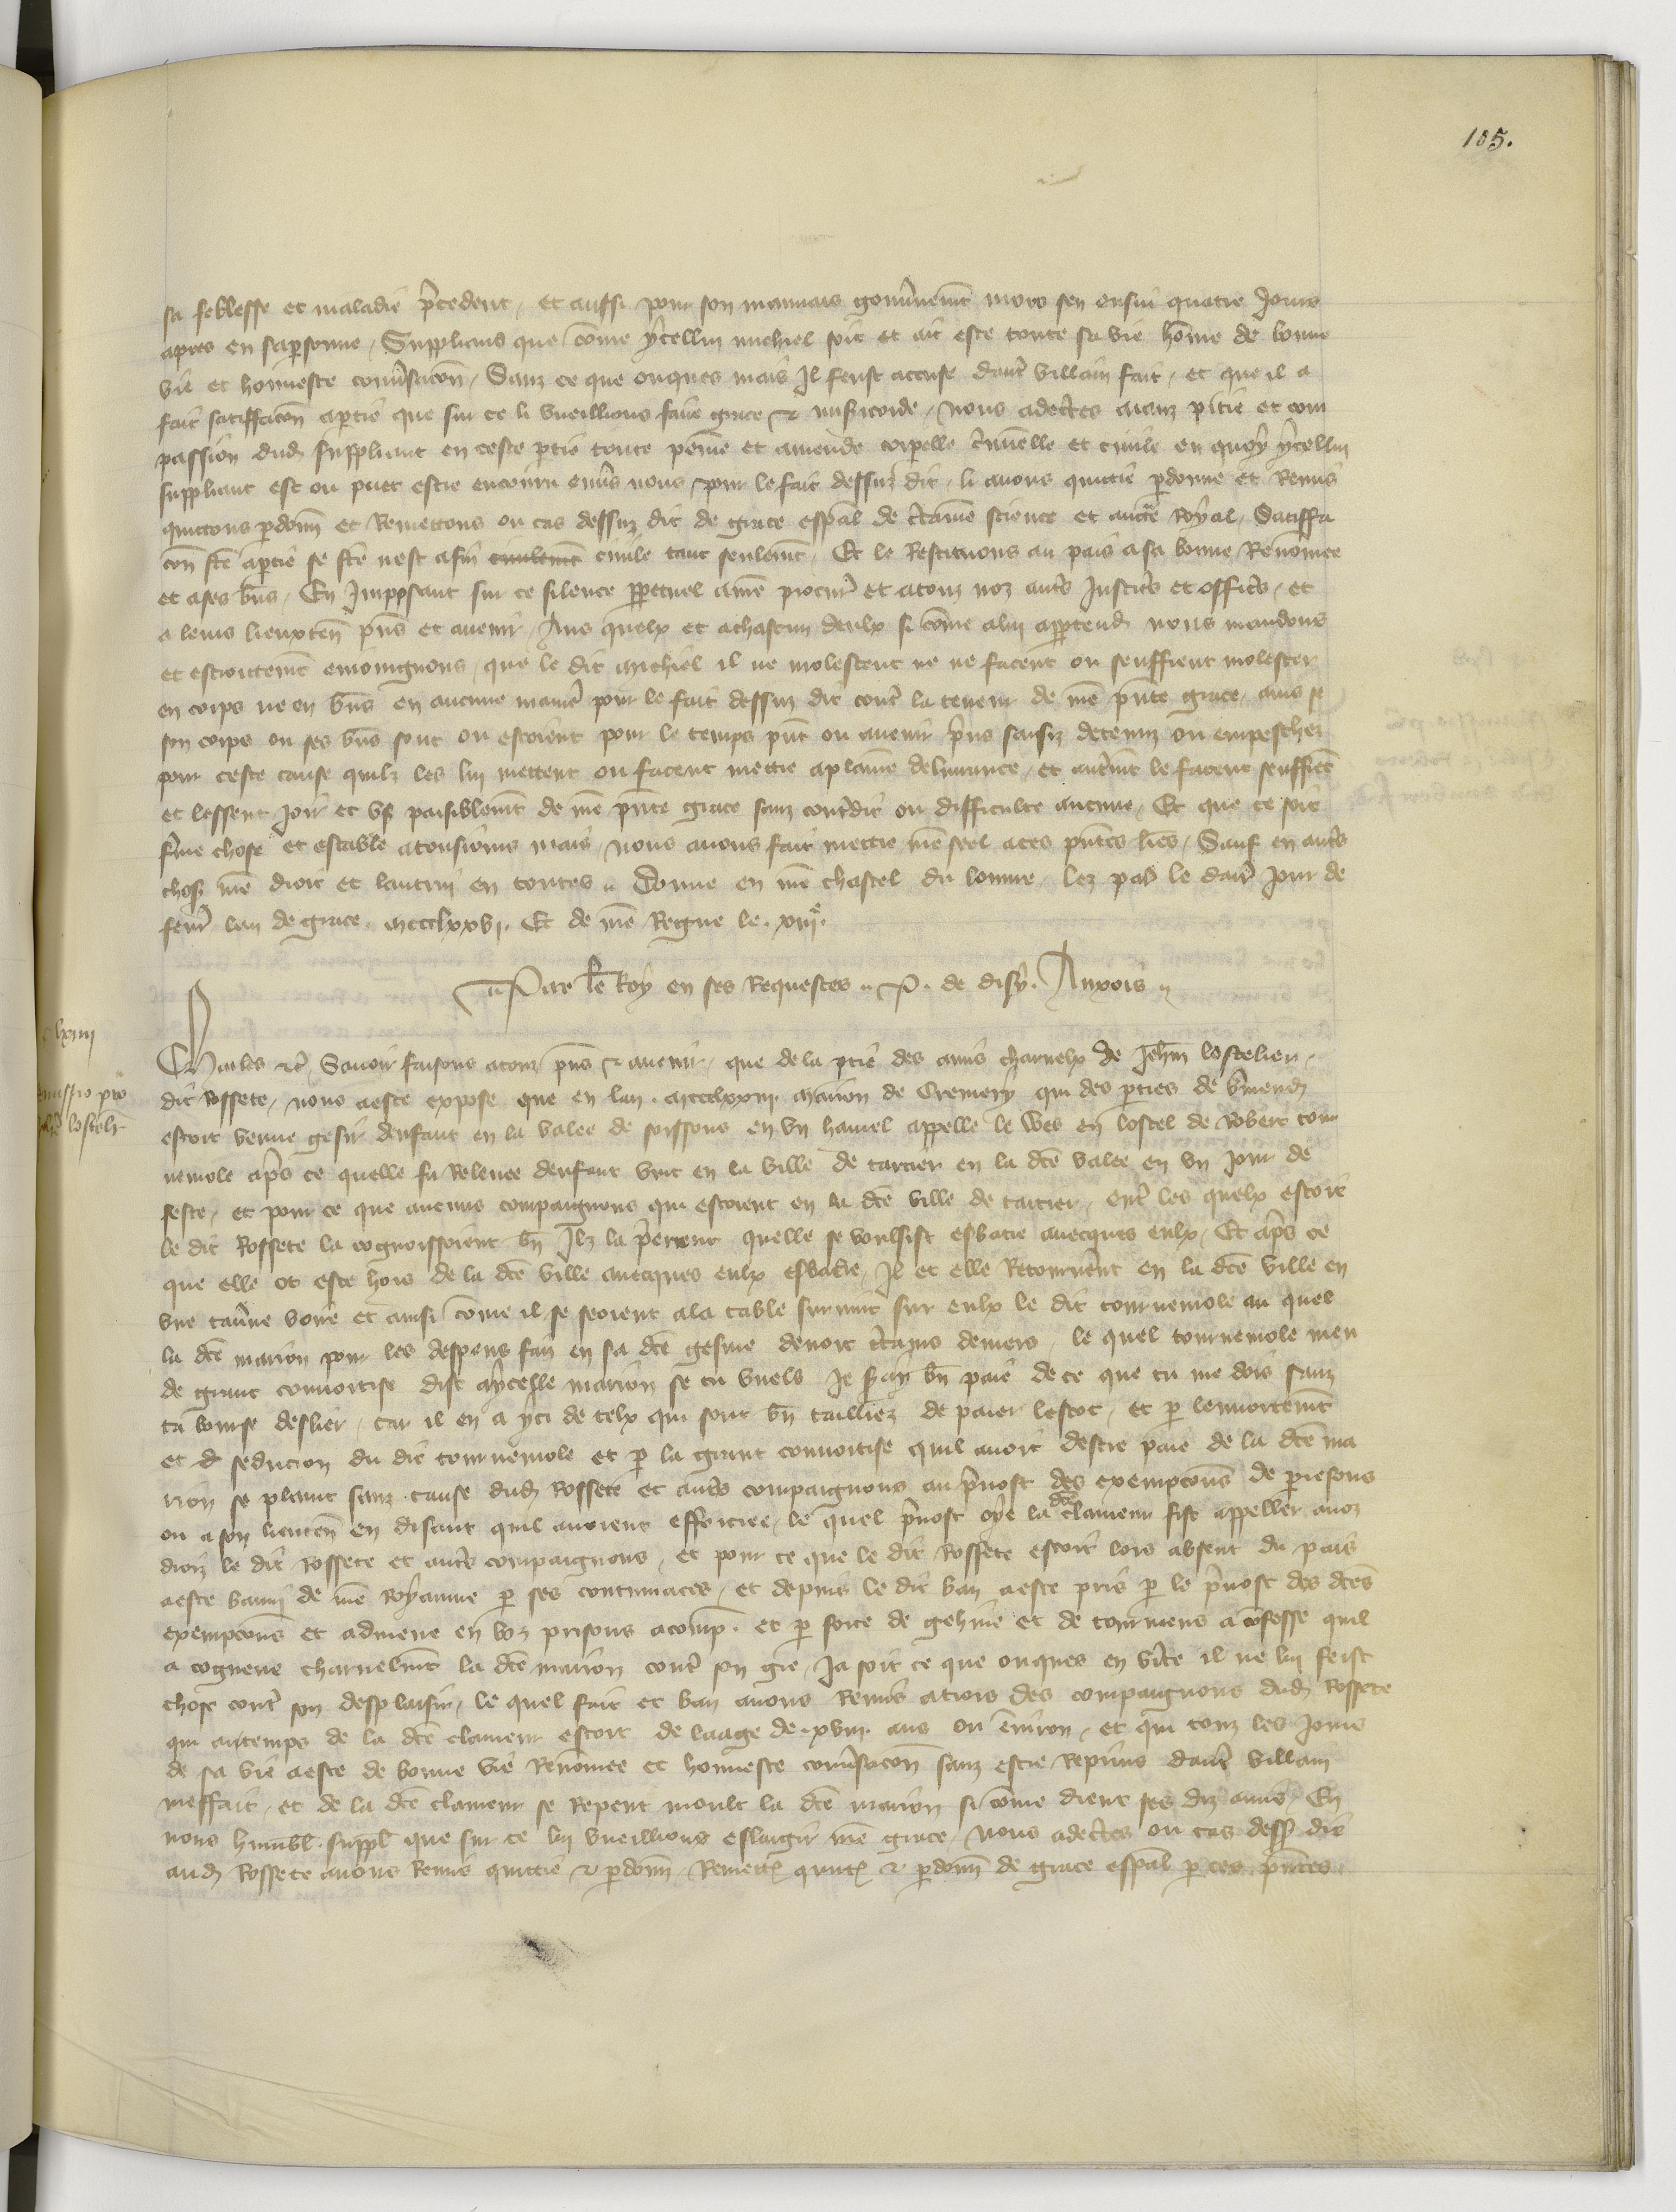 105.
sa feblesse et maladie p̄cedent, et aussi pour son mauuais gouu̅nem̅t mors sen ensui quatre Jours
apres en sa ꝑsonne, Supplians que co̅me ycellui michiel soit et ait este toute sa vie ho̅me de bonne
vie et honneste conu̅sac̅on, Sanz ce que onques mais Il feust accuse daut̅ villain fait, et que il a
fait satiffac̅on aptie que sur ce li vueillions faire grace ⁊ mis̅icorde, Nous adec̅tes aianz pitie et com
passion dud̅ suppliant en ceste ptie toute peine et amende corpelle c̅iminelle et ciuile en quoy ycellui
suppliant est ou puet estre encouru enu̅s nous pour le fait dessuz dit, li auons quittie ꝑdonne et Remis
quittons ꝑdonn̅ et Remettons ou cas dessuz dit de grace esp̅al de c̅taine science et auct̅e Royal, Satiffa
con fc̅e aptie se fc̅e nest afin ciuilem̅t ciuile tant seulem̅t, Et le Restituons au pais a sa bonne Renommee
et a ses bn̅s, En Imposant sur ce silence ꝑpetuel a nr̅e procur̅ et atouz noz aut̅s Justic̅s et offic̅s, et
a leurs lieuxten̅ pn̅s et auenir, Aus quelx et achascun deulx si co̅me alui appartend̅ nous mandons
et estroittem̅t enioingnons, que le dit Michiel il ne molestent ne ne facent ou seuffrent molester
en corps ne en bn̅s en aucune manie̅ pour le fait dessuz dit cont̅ la teneur de nr̅e pn̅te grace, ains se
son corps ou ses bn̅s sont ou estoient pour le temps pn̅t ou auenir p̅ns saisiz detenuz ou empeschez
pour ceste cause quilz les lui mettent ou facent mettre aplaine deliurance, et aut̅m̅t le facent seuffrent
et lessent Joir et vs̅ paisiblem̅t de nr̅e pn̅te grace sanz cont̅dit ou difficulte aucune, Et que ce soit
f̅me chose et estable atousiours mais, Nous auons fait mettre nr̅e seel a ces pn̅tes lr̅es, Sauf en aut̅s
chos̅ nr̅e droit et lautrui en toutes. Donne en nr̅e chastel du louure lez pa̅s le darr̅ Jour de
feur̅ lan de grace. mccclxxvj. Et de nr̅e Regne le. xiiiᵉ.
Par le Roy en ses Requestes. P. de disy. Anxois
lxiiii
missio pro
lostelr̅
Charles ⁊c̅, Sauoir faisons atouz pn̅s ⁊ auenir, que de la ptie des amis charnelx de Jeh̅n lostelier,
dit Rossete, nous aeste expose que en lan. mccclxxiii. Marion de Cremery qui des pties de v̅mend̅
estoit venue gesir denfant en la valee de soissons en vn hamel appelle le Wes en lostel de Robert tour
nemole ap̅s ce quelle fu Releuee denfant vint en la ville de tartier en la dc̅e valee en vn Jour de
feste, et pour ce que aucuns compaignons qui estoient en la dc̅e ville de tartier, ent̅ les quelx estoit
le dit Rossete la cognoissoient bn̅ Ilz la p̅erent quelle se voulsist esbatre auecques eulx, Et ap̅s ce
que elle ot este hors de la dc̅e ville auecques eulx esbatre, Il et elle Retournere̅nt en la dc̅e ville en
vne tau̅ne boire et ainsi co̅me il se seoient ala table suruint sur eulx le dit tournemole au quel
la dc̅e marion pour les despens faiz en sa dc̅e gesine deuoit c̅tains deniers, le quel tournemole men
de grant conuoitise dist aycelle marion se tu vuels Je s̅ay bn̅ paie de ce que tu me dois sanz
ta bourse deslier, car il en a yci de telx qui sont bn̅ tailliez de paier lescot, et ꝑ lenuortem̅t
et seducion du dit tournemole et ꝑ la grant conuoitise quil auoit destre paie de la dc̅e ma
rion se plaint sanz cause dud̅ Rossete et aut̅s compaignons au p̅uost des exempc̅ons de pierefons
ou a son lieuten̅ en disant quil auoient efforciee, le quel p̅uost oye la dc̅e clameur fist appeller auoz
droiz le dit Rossete et aut̅s compaignons, et pour ce que le dit Rossete estoit lors absent du pais
aeste banny de nr̅e Royaume ꝑ ses contumaces, et depuis le dit ban aeste pris ꝑ le p̅uost des dc̅es
exempc̅ons et admene en voz prisons acomp̅. et ꝑ force de gehine et de tourmens a co̅fesse quil
a cogneue charnelm̅t la dc̅e marion cont̅ son gre, Ja soit ce que onques en v̅ite il ne lui feist
chose cont̅ son desplaisir, le quel fait et ban auons Remis atrois des compaignons dud̅ Rossete
qui autemps de la dc̅e clameur estoit de laage de. xviii. ans ou enuiron, et qui touz les Jours
de sa vie aeste de bonne vie Renommee et honneste conu̅sac̅on sanz estre Reprins daut̅ villain
meffait, et de la dc̅e clameur se Repent moult la dc̅e marion si co̅me dient ses diz amis, En
nous humbl̅. suppl̅ que sur ce lui vueillions eslargir nr̅e grace, Nous adec̅tes ou cas dess̅ dit
aud̅ Rossete auons Remis quittie ⁊ ꝑdonn̅, Remett̅ quitt̅ ⁊ ꝑdonn̅ de grace esp̅al ꝑ ces pn̅tes